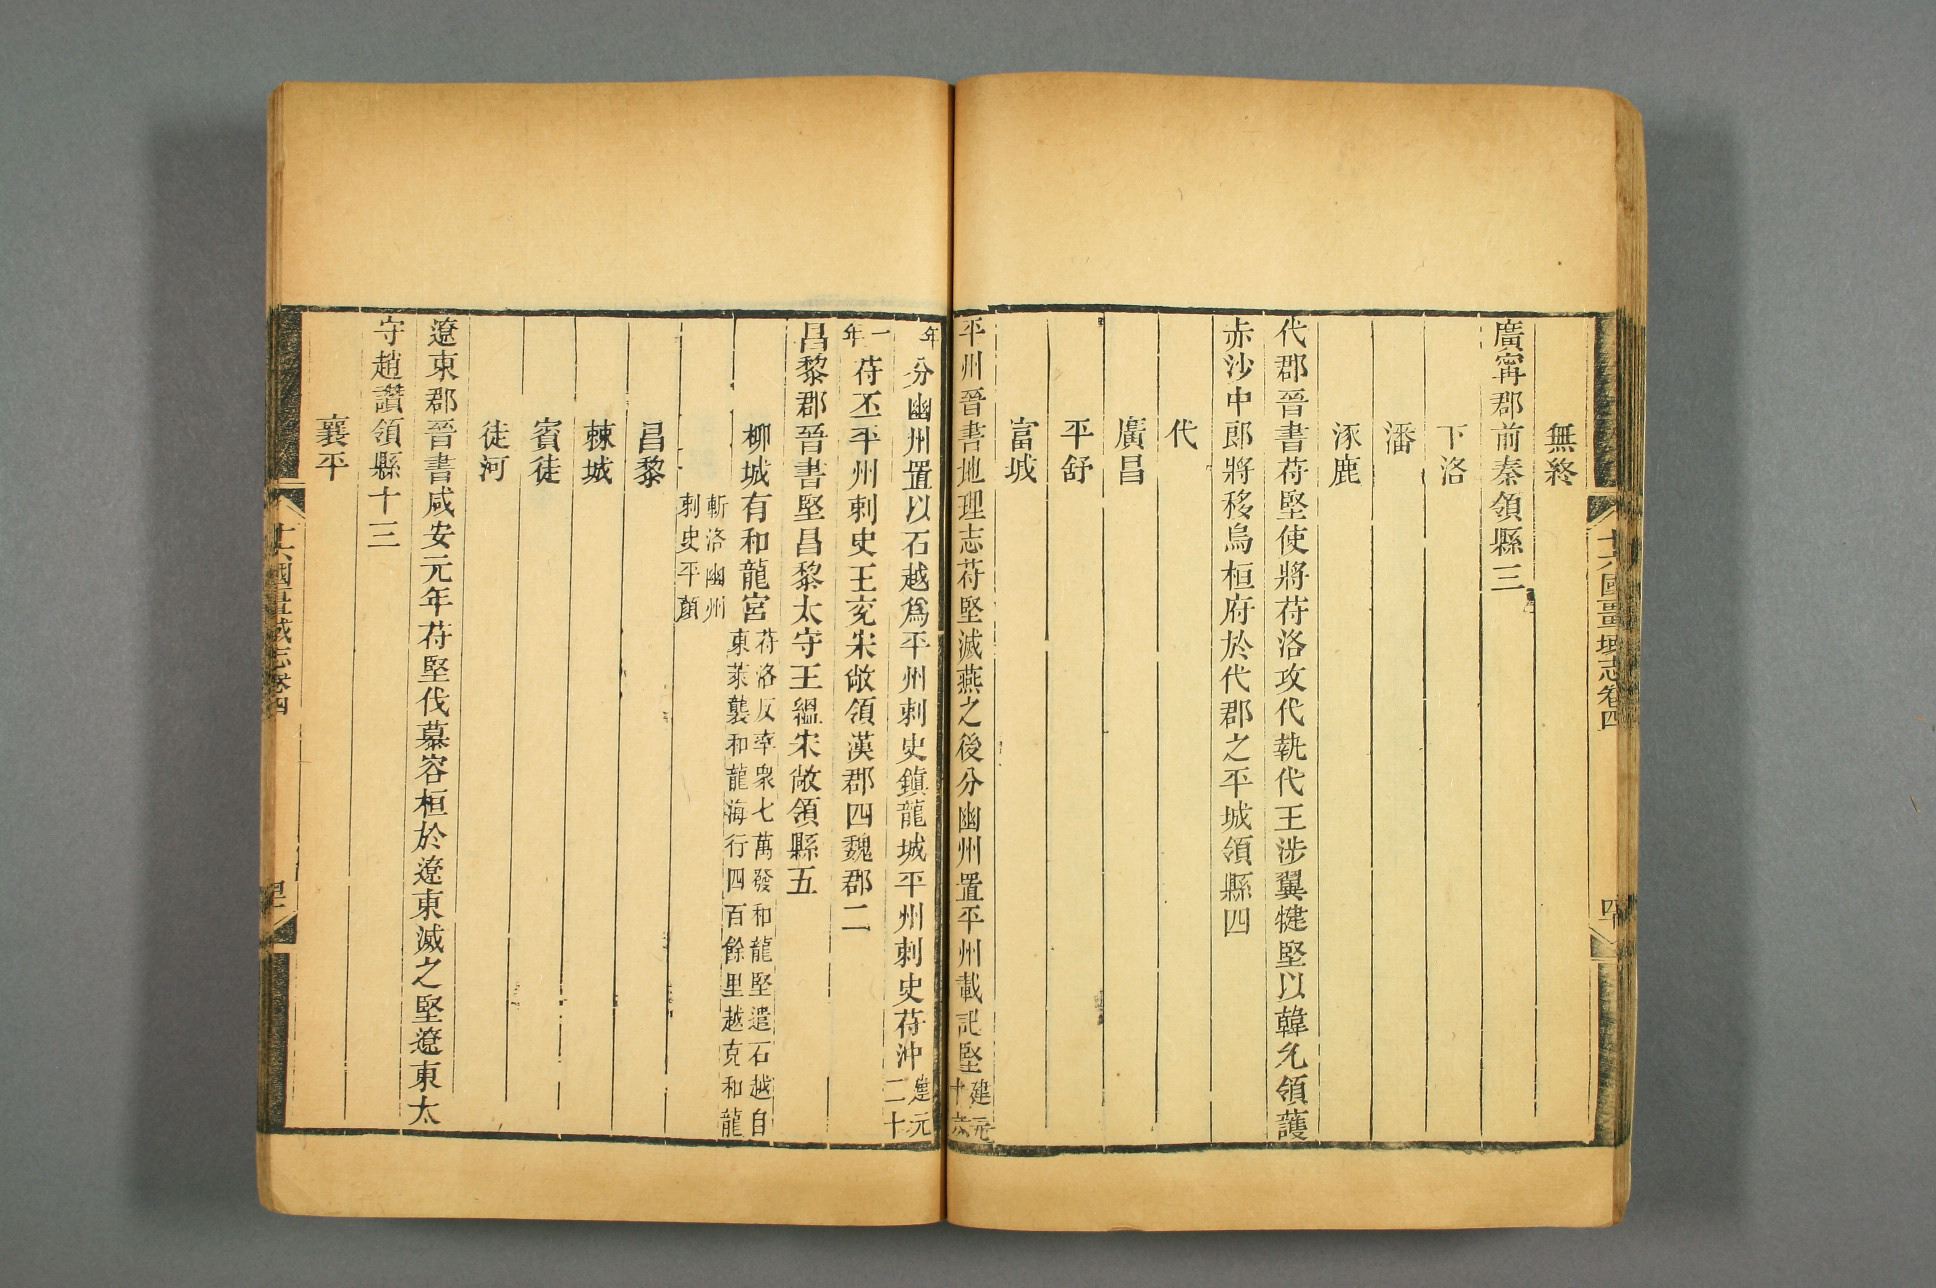 十六國疆域志卷四
四十
無終
廣甯郡前秦領縣三
下洛
潘
涿鹿
代郡晉書苻堅使將苻洛攻代執代王涉翼犍堅以韓允領護
赤沙中郎將移烏桓府於代郡之平城領縣四
代
廣昌
平舒
富城
平州晉書地理志苻堅滅燕之後分幽州置平州載記堅建元十六
年分幽州置以石越爲平州刺史鎮龍城平州刺史苻沖建元二十
一年苻丕平州刺史王兖宋敞領漢郡四魏郡二
昌黎郡晉書堅昌黎太守王縕宋敞領縣五
柳城有和龍宮苻洛反率衆七萬發和龍堅遣石越自東萊襲和龍海行四百餘里越克和龍
斬洛幽州刺史平顏
昌黎
棘城
賓徒
徒河
遼東郡晉書咸安元年苻堅伐慕容桓於遼東滅之堅遼東太
守趙讚領縣十三
襄平
十六國疆域志卷四